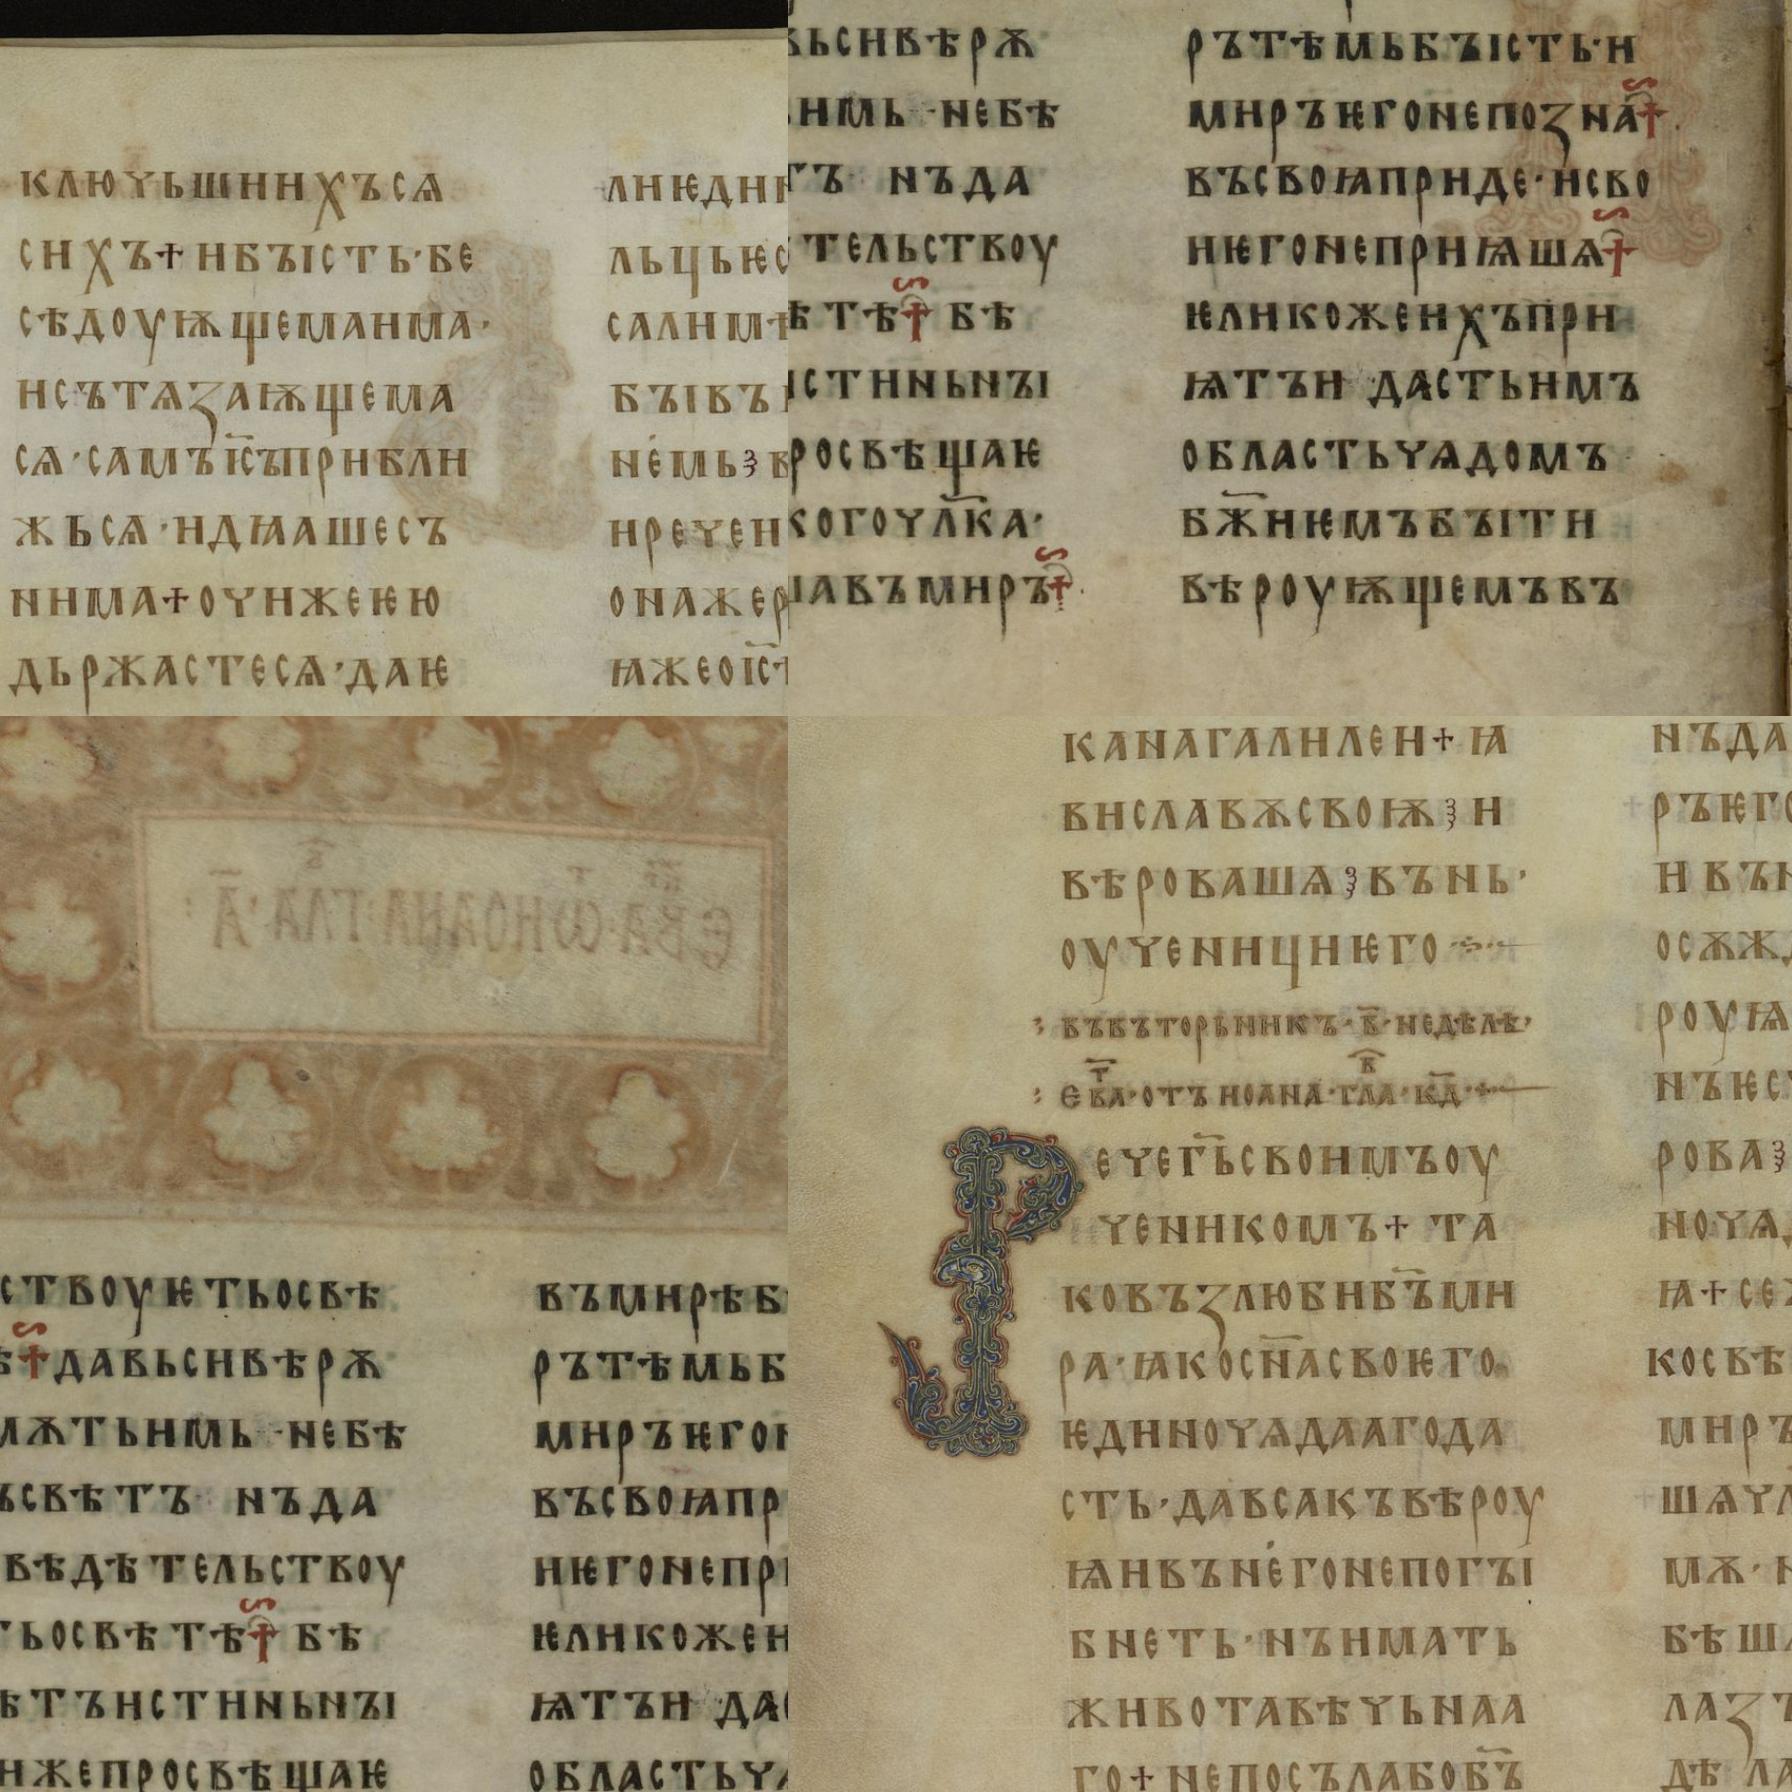 ключьшиихъсѧ
сихъ+нбъість·бе
сѣдоуѭщемаима·
исътѧзаѭщема
сѧ·самъіс҃ъприбли
жьсѧ·идꙗашесъ
нима+очижеѥю
дьржастесѧ·даѥ
салим
бъівъ
не́мь
иречен
онажер
ꙗжеоіс҃
вьсивѣрѫ
имь·небѣ
нъда
тельствоу
бѣ
истиньнъі
росвѣщаѥ
когочл҃ка·
вамиръ
рътѣмьбъість·и
миръѥгонепозна
въсвоꙗприде·исво
иѥгонеприꙗшѧ
ѥликоженхъпри
ѩтъи дастьимъ
областьчѧдомъ
бж҃иѥмъбъіти
вѣроуѭщемъвъ
ствоуѥтьосвѣ
давьсивѣрѫ
мѫтьимь·небѣ
свѣтъ нъда
вѣдѣтельствоу
тьосвѣтѣ бѣ
ѣтъистиньнъі
ижепросвѣщаѥ
въмирѣб
рътѣмьб
миръѥго
въсвоꙗпр
иѥгонепри
ѥликожен
ѩтъи да
областьч
канагалилеи+ꙗ
виславѫсвоѭ и
вѣровашѧ вънь·
оученициѥго
въвъторьникъ·в҃·недѣлѣ·
ев҃а·отъиоана·гла·кд҃·
Речег҃ьсвоимъоу
ченикомъ+ та
ковъзлюбиб҃ъми
ра·ꙗкосн҃асвоѥго
ѥдиночѧдаагода
сть·давсакъвѣроу
ѩивъне́гонепогъі
бнеть·нънмать
животавѣчьнаа
го+непосълабоб҃ъ
нъда
ръѥго
осѫж
роуѩ
нъѥс
рова
ночѧ
косвѣ
мир
шѧчл
мѫ·
бѣш
лаз